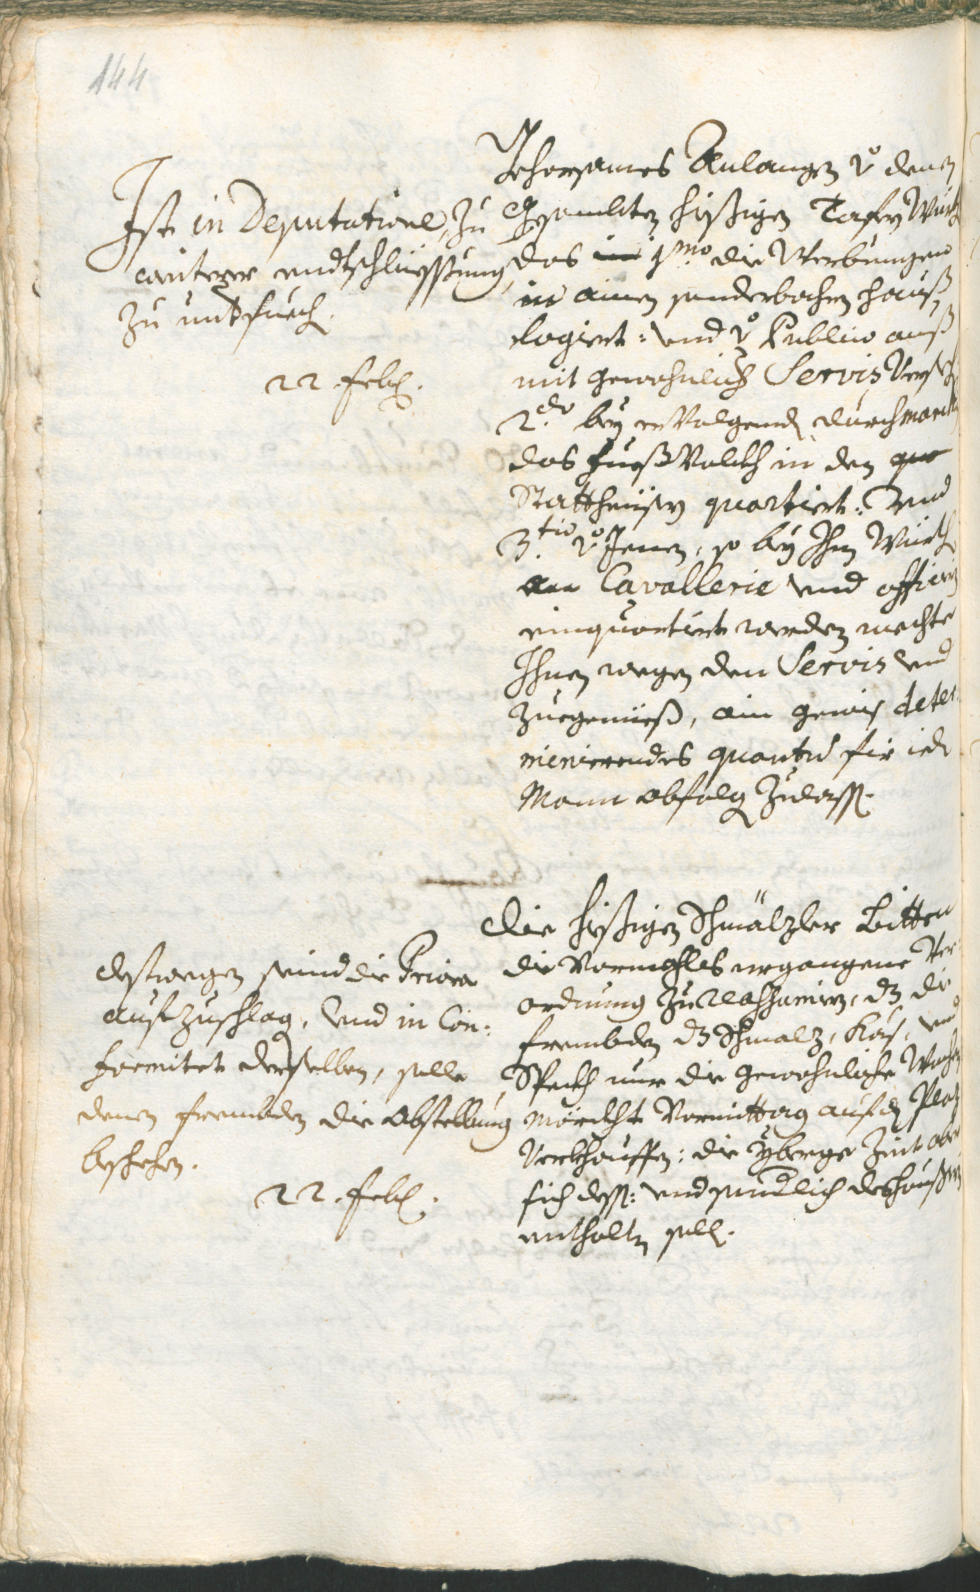 144
Ist in Deputatione, zu
weiterer endtschliessung,
zu undtsuech.
22. Feb.
Gehorsames Anlangen v. denen
gesambten hießigen Tafern Würth
das 1.mo die Werbungen
in ainen sonderbahren hauß
logiert: und v. Publico auß
mit gewohnlich Servis
2.do bey ervolgend durchmarch
das FuesßVolckh in den
Statthäusern quartiert: Und
3.tio v. Jenen, so bey Ihn Würth
an Cavallerie und officier
einquartiert werden mechte
Ihnen wegen den Servis und
Zuegemieß, ain gewis deter
minierendes quantu fir ied
Mann abfolg zulass.
Die hießigen Schmälzler bitten
die Vormahls ergangene Ver
ordnung zu, dz die
frembden dz Schmalz, Käs, und
Speckh nur die gewohnliche Wochen
Märckht Vormittag auf den Plaz
Verkhauffen: die yberige Zeit aber
sich dess: und sondlich deshaußiern
enthalten soll.
destwegen seind die Priora
aufzuschlag, und in Con:
formitet derselben, solle
denen frembden die Abstellung
beschehen.
22. Feb.